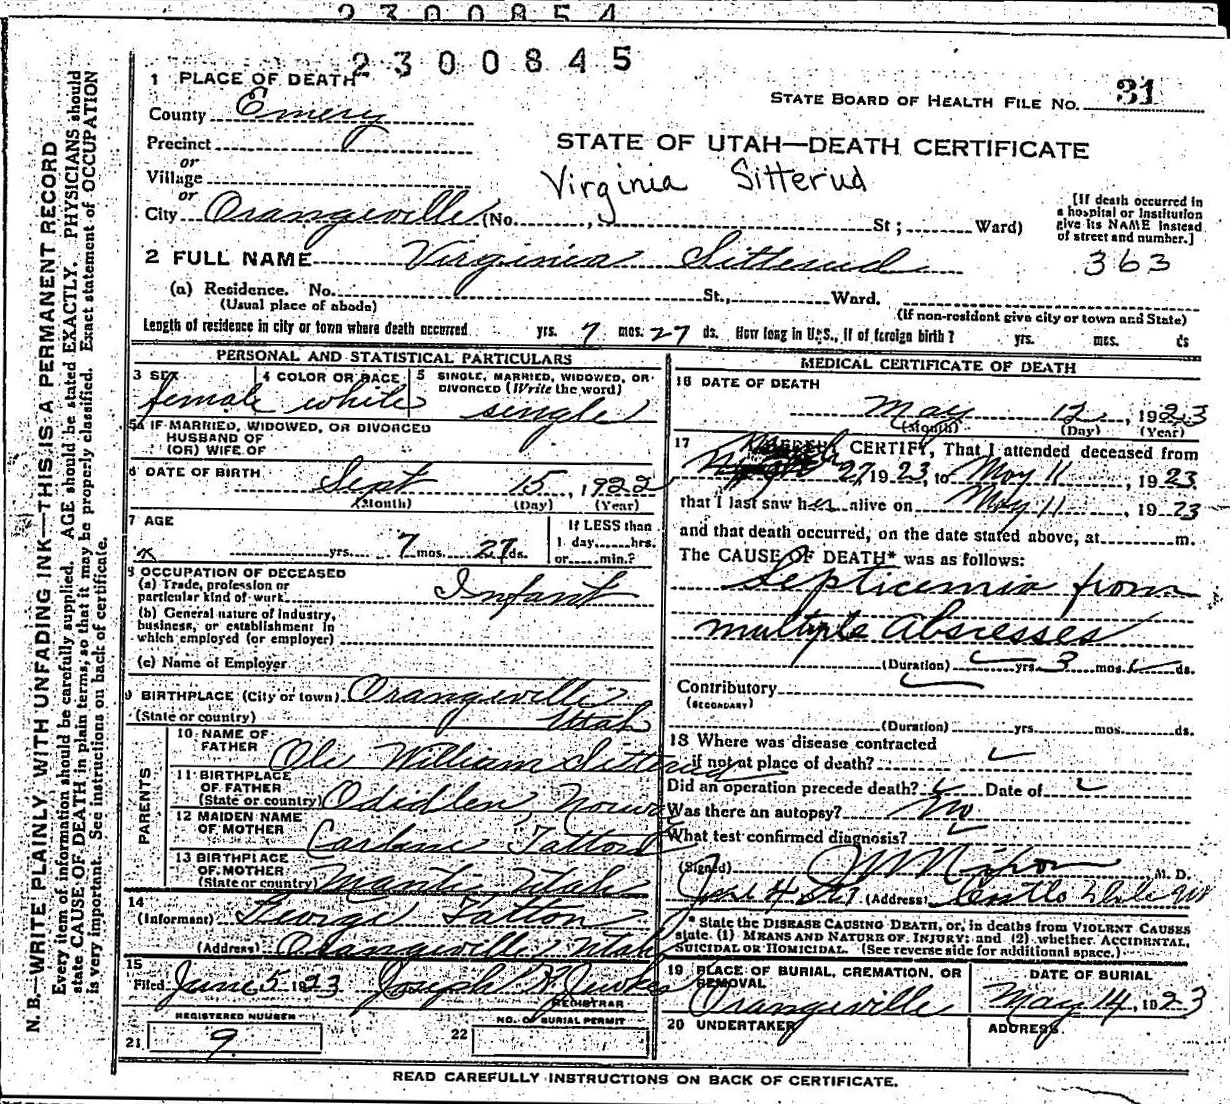 2300854
2300845
31
1 PLACE OF DEATH
STATE BOARD OF HEALTH FILE NO.
County Emery
Precinct
or
Village
or
STATE OF UTAH—DEATH CERTIFICATE
Virginia Sitterud
City Orangeville (No. , St ; Ward)
[If death occurred in
a hospital or institution
give its NAME instead
of street and number.]
2 FULL NAME Virginia Sitterud
363
(a) Residence. No. St., Ward.
(Usual place of abode)
(If non-resident give city or town and State)
Length of residence in city or town where death occurred yrs. 7 mos. 27 ds. How long in U.S., if of foreign birth? yrs. mos. ds
PERSONAL AND STATISTICAL PARTICULARS
3 SEX
female
4 COLOR OR RACE
white
5 SINGLE, MARRIED, WIDOWED, OR
DIVORCED (Write the word)
single
5a IF MARRIED, WIDOWED, OR DIVORCED
HUSBAND OF
(OR) WIFE OF
6 DATE OF BIRTH
Sept 15, 1922
(Month) (Day) (Year)
7 AGE
yrs. 7 mos. 27 ds.
If LESS than
1 day hrs.
or min.?
8 OCCUPATION OF DECEASED
(a) Trade, profession or
particular kind of work Infant
(b) General nature of industry,
business, or establishment in
which employed (or employer)
(c) Name of Employer
9 BIRTHPLACE (City or town) Orangeville
(State or country) Utah
PARENTS
10 NAME OF
FATHER Ole William Sitterud
11 BIRTHPLACE
OF FATHER
(State or country)
12 MAIDEN NAME
OF MOTHER
13 BIRTHPLACE
OF MOTHER
(State or country) Manti Utah
14
(Informant) George Fatton
(Address) Orangeville Utah
15
Filed June 5 1923 Joseph
REGISTRAR
REGISTERED NUMBER
21 9
NO. OF BURIAL PERMIT
22
MEDICAL CERTIFICATE OF DEATH
16 DATE OF DEATH
May 12, 1923
(Month) (Day) (Year)
17 CERTIFY, That I attended deceased from
27, 1923, to May 11, 1923
that I last saw her alive on May 11, 1923
and that death occurred, on the date stated above, at m.
The CAUSE OF DEATH* was as follows:
Septicemia from
multiple Abscesses
(Duration) yrs. 3 mos. ds.
Contributory
(SECONDARY)
(Duration) yrs. mos. ds.
18 Where was disease contracted
if not at place of death?
Did an operation precede death? Date of
Was there an autopsy? No
What test confirmed diagnosis?
(Signed) M. D.
(Address) Castle Dale
* State the DISEASE CAUSING DEATH, or, in deaths from VIOLENT CAUSES
state (1) MEANS AND NATURE OF INJURY; and (2) whether ACCIDENTAL,
SUICIDAL OR HOMICIDAL. (See reverse side for additional space.)
19 PLACE OF BURIAL, CREMATION, OR
REMOVAL
Orangeville
DATE OF BURIAL
May 14, 1923
20 UNDERTAKER
ADDRESS
READ CAREFULLY INSTRUCTIONS ON BACK OF CERTIFICATE.
N. B.—WRITE PLAINLY, WITH UNFADING INK—THIS IS A PERMANENT RECORD
Every item of information should be carefully supplied. AGE should be stated EXACTLY. PHYSICIANS should
state CAUSE OF DEATH in plain terms, so that it may be properly classified. Exact statement of OCCUPATION
is very important. See instructions on back of certificate.